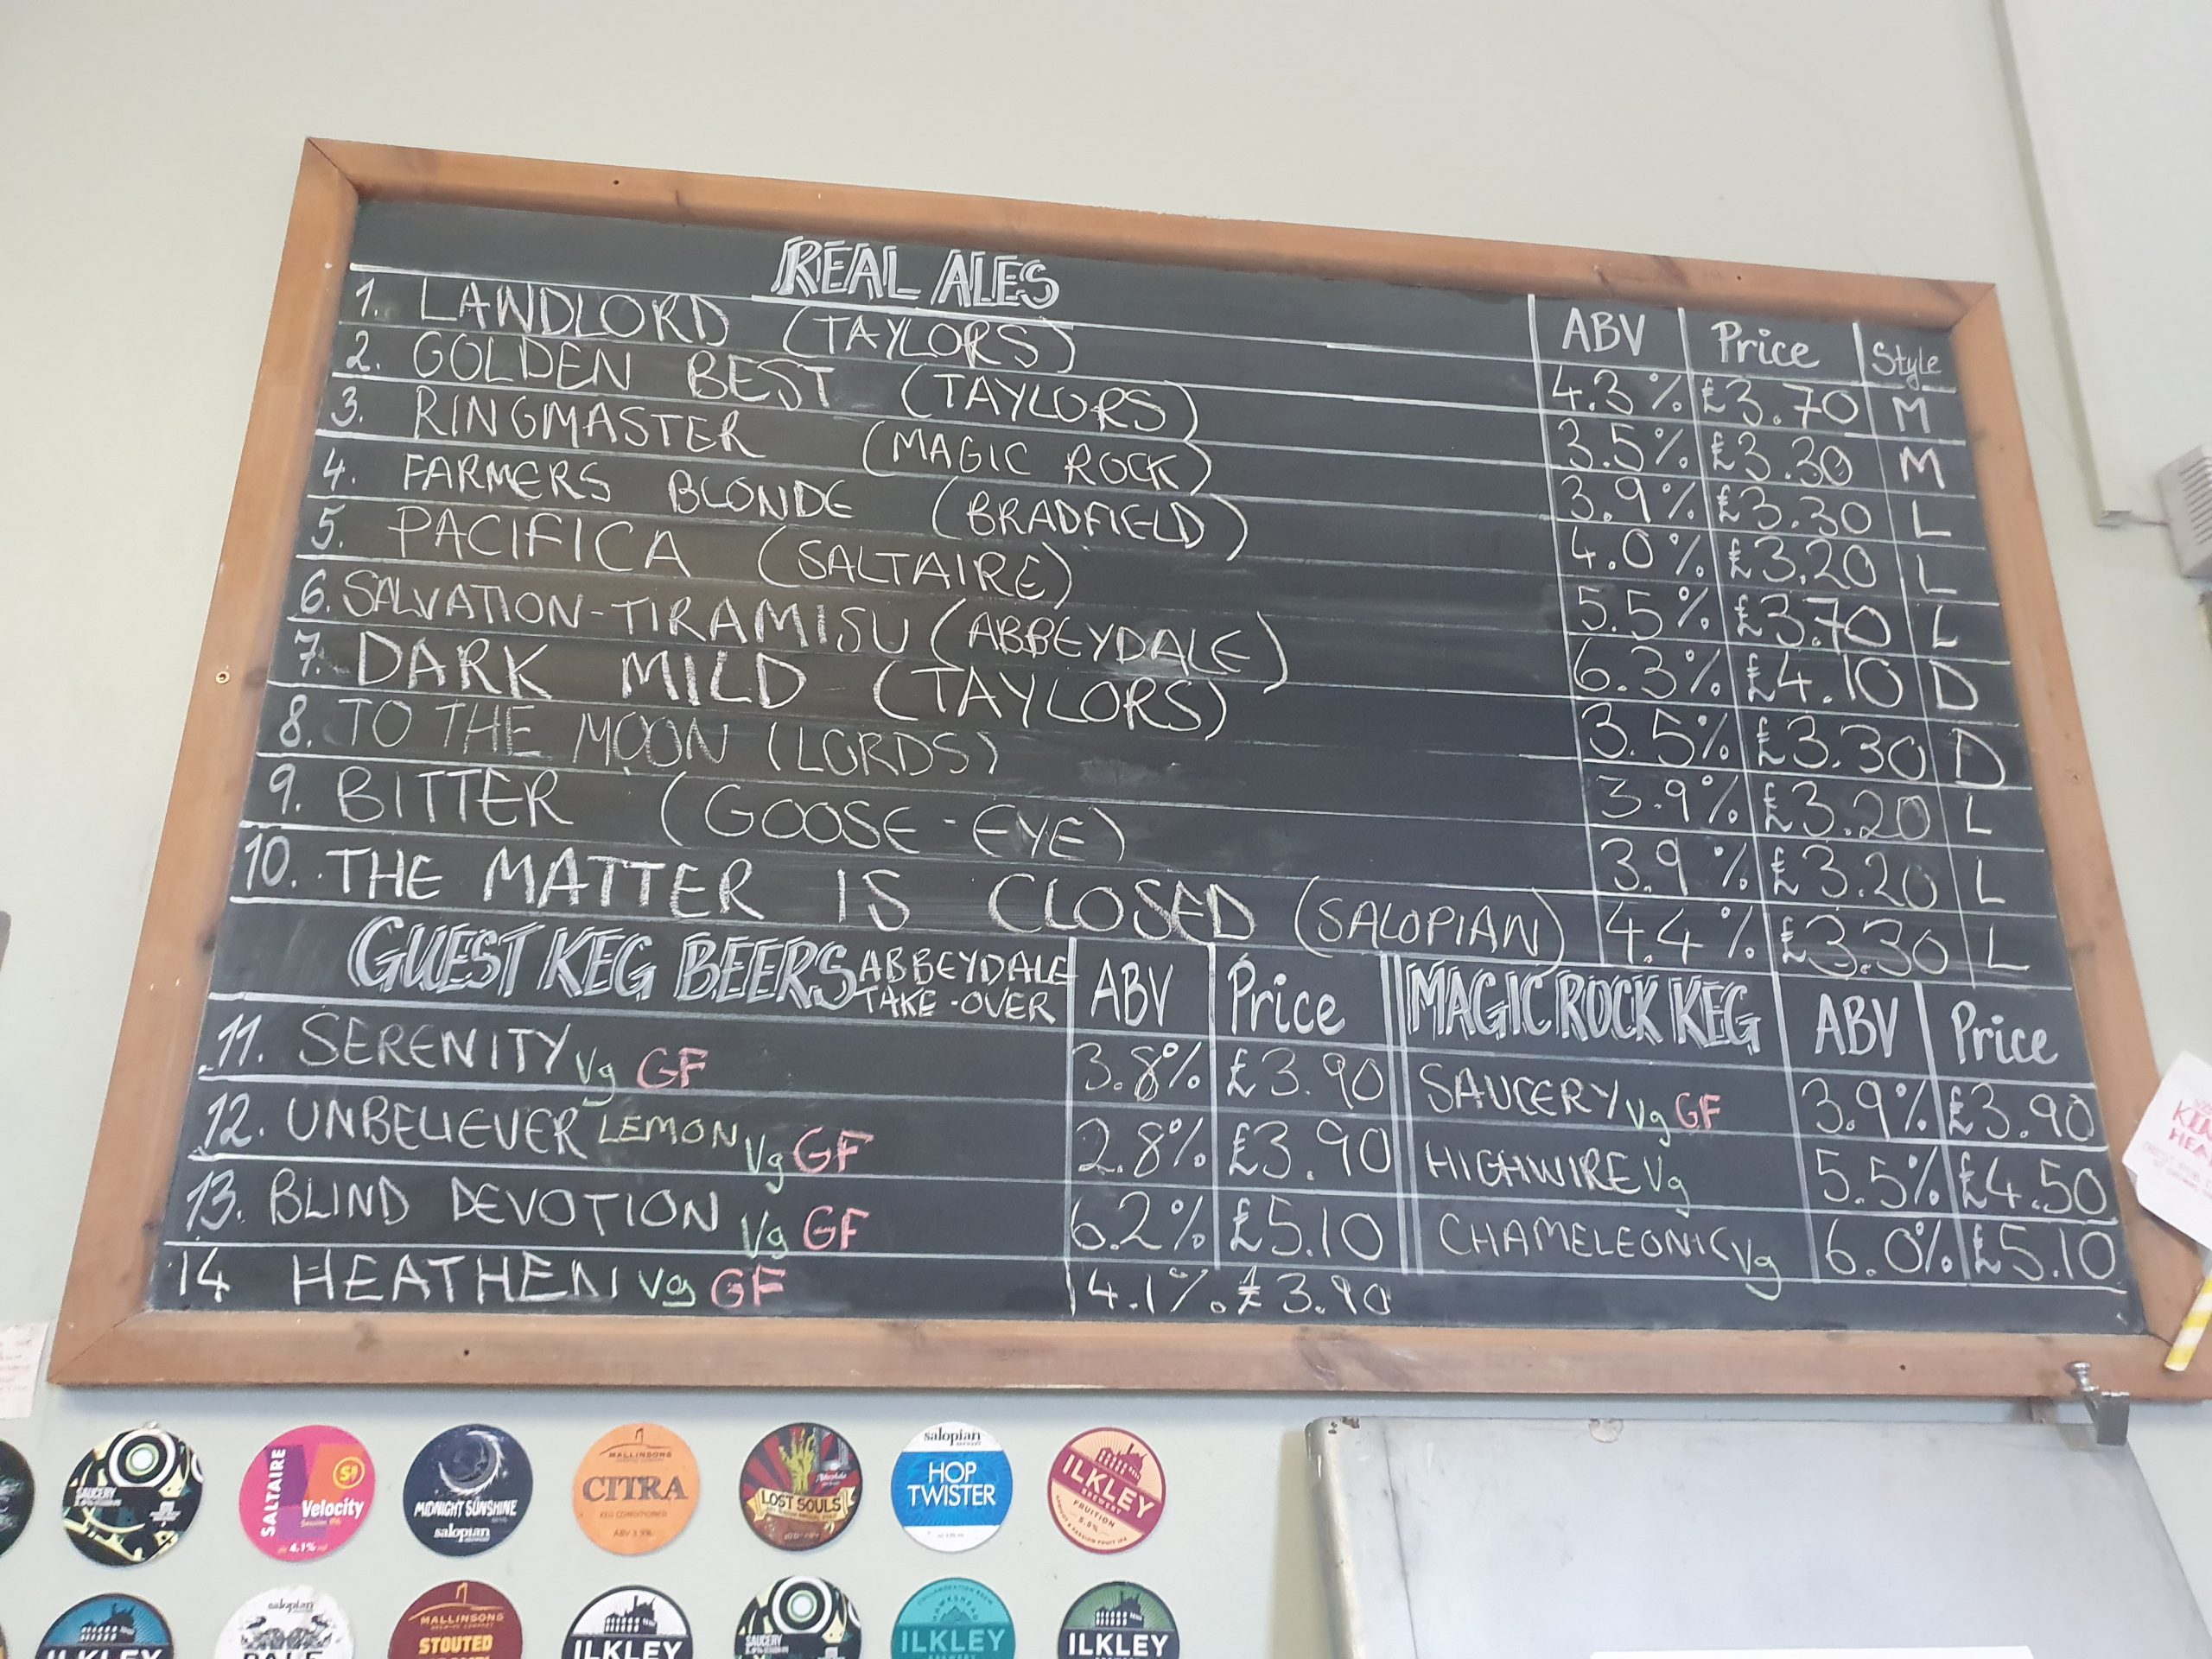 REAL ALES
ABV Price Style
1. LANDLORD (TAYLORS) 4.3% £3.70 M
2. GOLDEN BEST (TAYLORS) 3.5% £3.30 M
3. RINGMASTER (MAGIC ROCK) 3.9% £3.30 L
4. FARMERS BLONDE (BRADFIELD) 4.0% £3.20 L
5. PACIFICA (SALTAIRE) 5.5% £3.70 L
6. SALVATION-TIRAMISU (ABBEYDALE) 6.3% £4.10 D
7. DARK MILD (TAYLORS) 3.5% £3.30 D
8. TO THE MOON (LORDS) 3.9% £3.20 L
9. BITTER (GOOSE-EYE) 3.9% £3.20 L
10. THE MATTER IS CLOSED (SALOPIAN) 4.4% £3.30 L
GUEST KEG BEERS ABBEYDALE TAKE-OVER ABV Price
11. SERENITY Vg GF 3.8% £3.90
12. UNBELIEVER LEMON Vg GF 2.8% £3.90
13. BLIND DEVOTION Vg GF 6.2% £5.10
14 HEATHEN Vg GF 4.1%. £3.90
MAGIC ROCK KEG ABV Price
SAUCERY Vg GF 3.9% £3.90
HIGHWIRE Vg 5.5% £4.50
CHAMELEONIC Vg 6.0% £5.10
SAUCERY
SALTAIRE
Velocity
4.1%
MIDNIGHT SUNSHINE
salopian
MALLINSONS
CITRA
KEG CONDITIONED
ABV 3.9%
LOST SOULS
salopian
HOP
TWISTER
ILKLEY
BREWERY
FRUITION
5.5%
ILKLEY
salopian
MALLINSONS
STOUTED
ILKLEY
SAUCERY
HAWKSHEAD
ILKLEY
BREWERY
ILKLEY